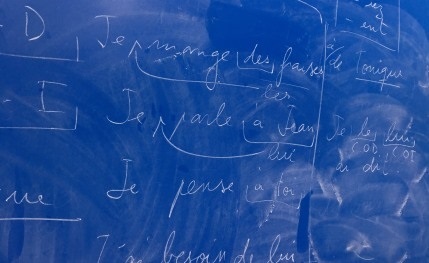 - D
Je mange des fraises
les
- I
Je parle à Jean
lui
Je pense à toi
J'ai besoin de lui
- ent
à/de Tonique
Je les lui
COD COI
ai dit